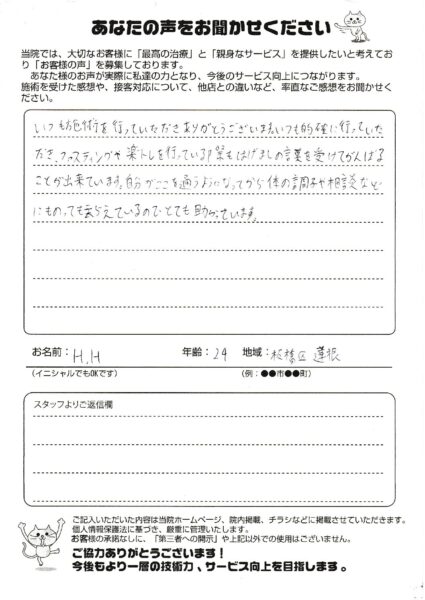 あなたの声をお聞かせください
当院では、大切なお客様に「最高の治療」と「親身なサービス」を提供したいと考えてお
り「お客様の声」を募集しております。
あなた様のお声が実際に私達の力となり、今後のサービス向上につながります。
施術を受けた感想や、接客対応について、他店との違いなど、率直なご感想をお聞かせく
ださい。
いつも施術を行っていただきありがとうございます。いつも的確に行っていた
だき、ファスティングや楽トレを行っている時もはげましの言葉を受けてがんばる
ことが出来ています。自分がここを通うようになってから体の調子や相談など
にものってもらえているのでとても助かっています。
お名前： H.H 年齢： 24 地域： 板橋区 蓮根
（イニシャルでもOKです） （例：●●市●●町）
スタッフよりご返信欄
ご記入いただいた内容は当院ホームページ、院内掲載、チラシなどに掲載させていただきます。
個人情報保護法に基づき、厳重に管理いたします。
お客様の承諾なしに、「第三者への開示」や上記以外での使用はございません。
ご協力ありがとうございます！
今後もより一層の技術力、サービス向上を目指します。